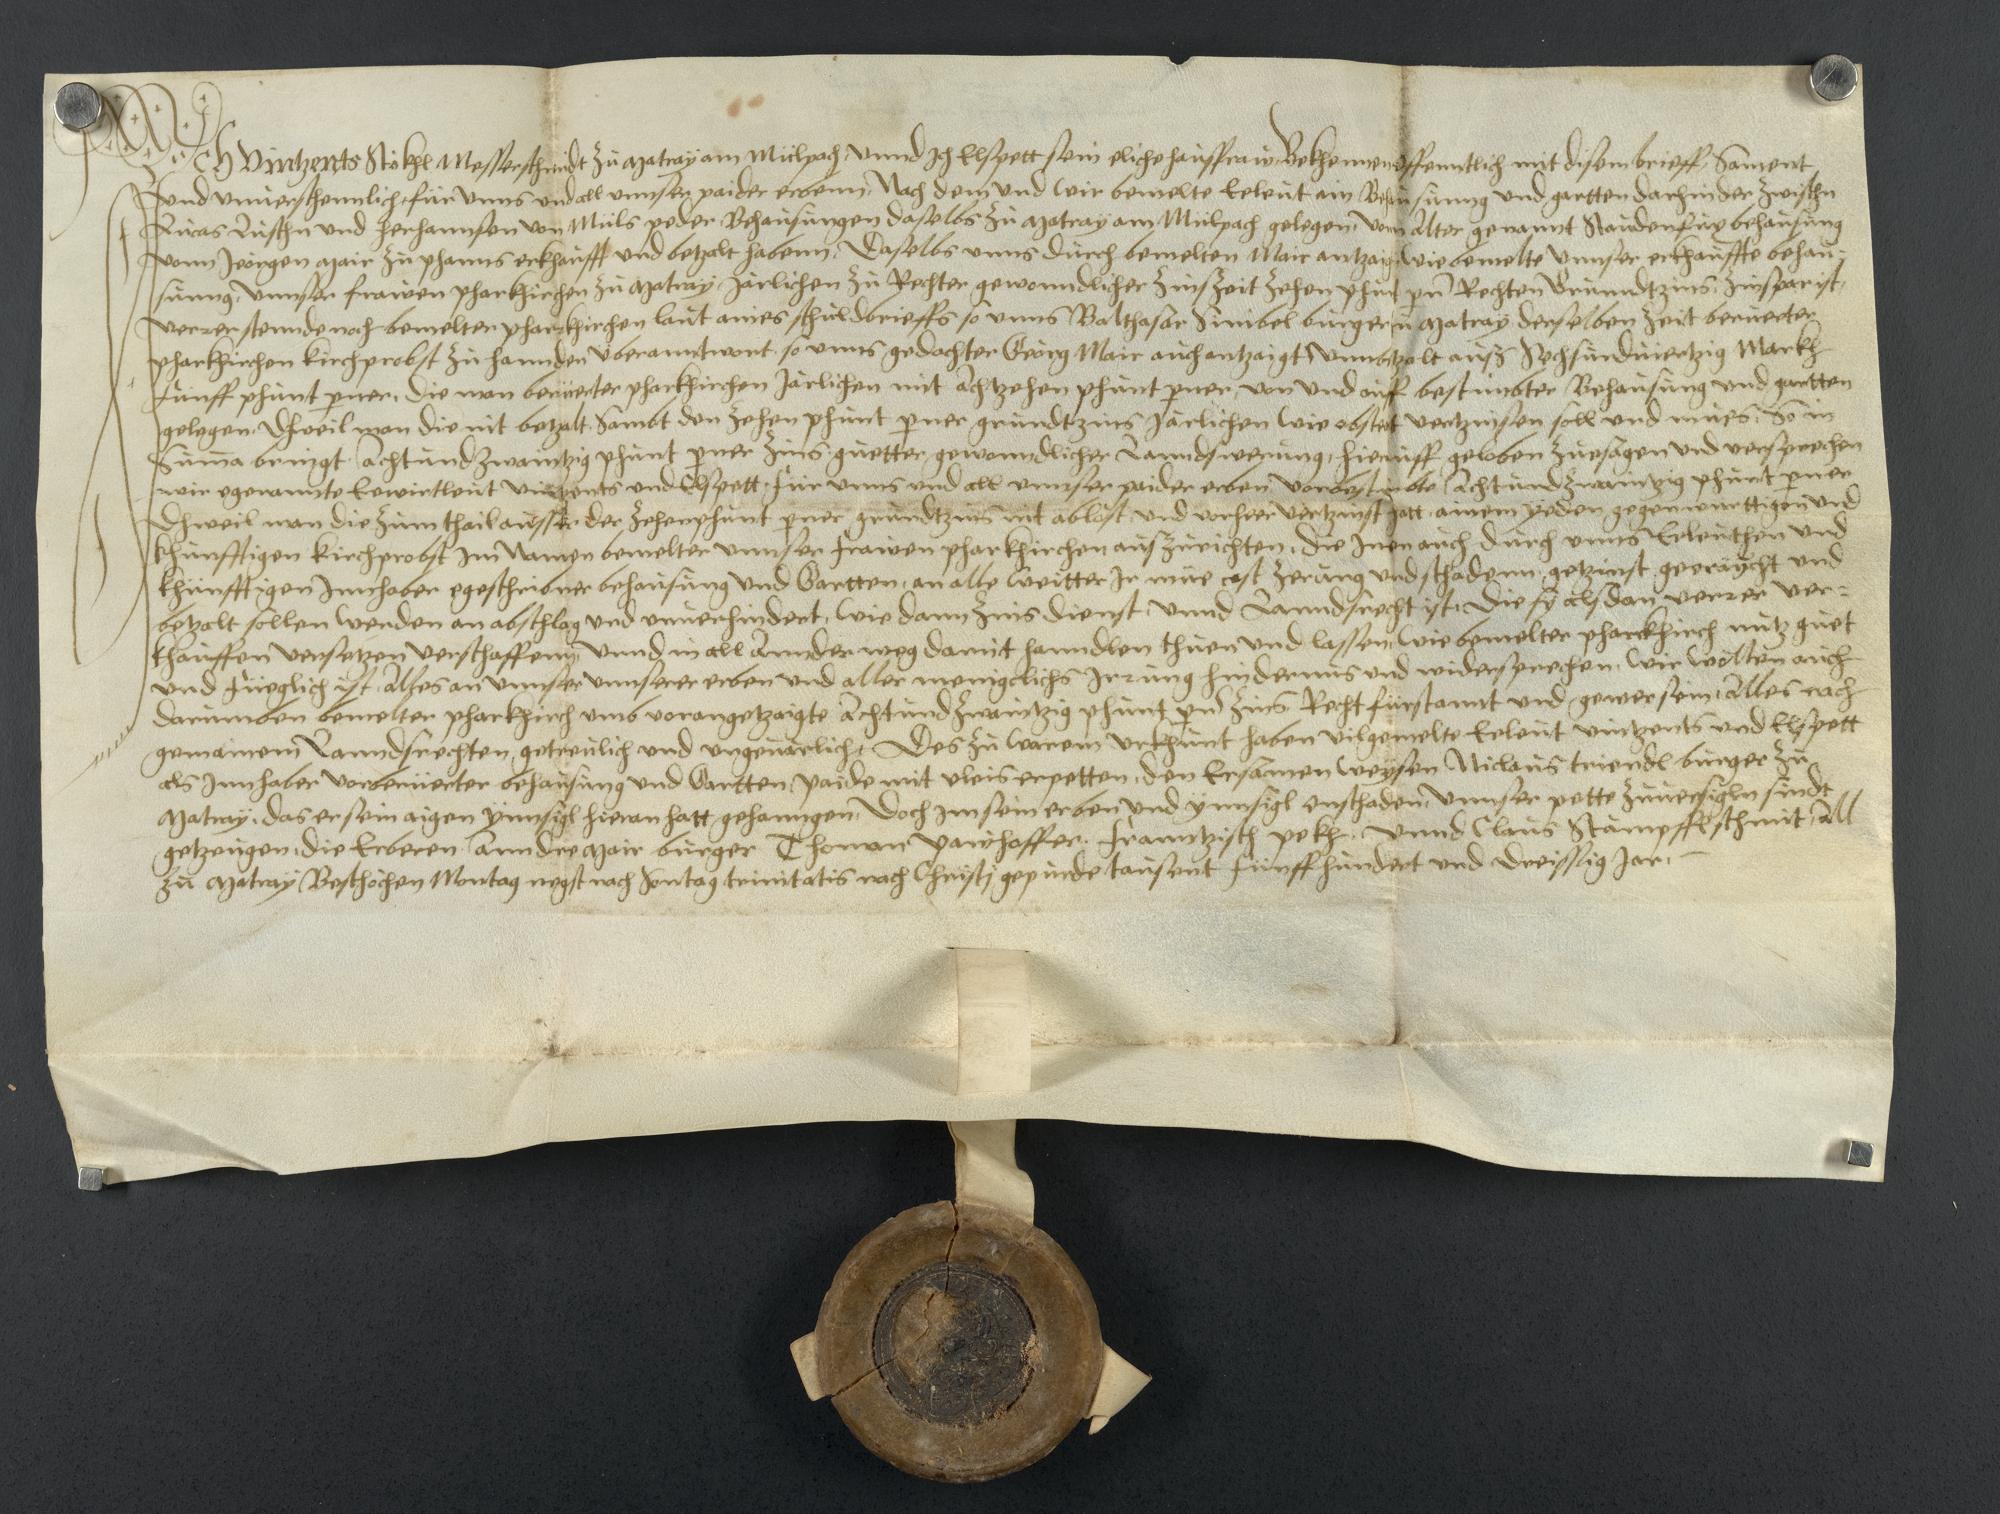 Ich Vintzents Stökhl Messerschmidt zu Matray am Mülpach, vnnd Ich Elspett sein eliche hausfraw, Bekhennen offenntlich mit disem brieff, Sament
vnd vnuerschennlich, für vnns vnd all vnnser paider erbenn, Nach dem vnd wir bemelte Eeleut ain Behausung vnd gartten darhinder zwischn
Lucas Luschn vnd herhannsen von Müls peder Behausungen daselbs zu Matray am Mülpach gelegen, vonn Alter genannt behausung
vonn Jeorgen Mair zu phanns erkhaufft vnd betzalt habenn, Daselbs vnns durch bemelten Mair antzaig, wie bemelte vnnser erkhauffte behau-
sung, vnnser frawen pharkhirchen zu Matray, Järlichen zu Rechter gewonndlicher Zins Zeit Zehen phunt pn Rechten Grundtzins, Zinspar ist,
verrer stennde noch bemelter pharkhirchen laut aines schuldbrieffs so vnns Balthasar burger zu Matray derselben Zeit beruerter
pharkhirchen kirchprobst zu hannden vberanntwort, so vnns gedachter Georg Mair auch antzaigt, vnnbetzalt auss Sechsundviertzig Markh
Funff phunt perner, die man berüerter pharkhirchen Järlichen mit Achtzehen phunt perner, von vnd auff bestimbter Behausung vnd gartten
gelegen, Dhweil man die nit betzalt, Sambt den Zehen phunt perner grundtzins Järlichen wie obstet vertzinsen soll vnd mues, So in
Suma bringt Achtundzwaintzig phunt perner Zins guetter gewonndlicher Lanndswerung, Hierauff geloben Zuesagen vnd versprechen
wir egenannte Eewirtleut Vintzents vnd Elspett, für vnns vnd all vnnser paider erben, vorbestimbte Achtundzwaintzig phunt perner
Dhweil man die zum thail ausser der Zehen phunt perner grundtzins nit ablöst, vnd vorher vertzinst hatt, ainem yeden gegenwurttigen vnd
khunfftigen kirchprobst Im Namen bemelter vnnser frawen pharkhirchen ausszurichten, die Inen auch durch vnns Eeleuthen vnd
khünfftigen Innhaber egeschribner behausung vnd Gartten, an alle weitter Ir müe cost Zerung vnd schadenn, getzinst geraicht vnd
betzalt sollen werden an abschlag vnd vnuerhindert, wie dann Zins dienst vnnd Lanndsrecht ist, Die sy alsdan verrer ver-
khauffen versetzen verschaffenn, vnnd in all annder weg damit hanndlen thuen vnd lassen, wie bemelter pharkhirch nutz guet
vnd fueglich ist, Alles an vnnser vnnserer erben vnd aller menigclichs Irrung hindernus vnd widersprechen, Wir wöllen auch
darumben bemelter pharkhirch vmb vorangetzaigte Achtundzwaintzig phunt pn Zins Recht fürstannt vnd gewer sein, Alles nach
gemainem Lanndsrechten, getreulich vnd vngeuärlich, Des zu warem vrkhunt haben vilgemelte Eeleut Vintzents vnd Elspett
als Innhaber vorberüerter behausung vnd Gartten, paide mit vleis erpetten, den Ersamen Weysen Niclaus triendl burger zu
Matray, das er sein aigen Ynnsigl hieran hatt gehanngen, Doch im sein erben vnd ynnsigl enschaden, vnnser pette zuuersigln sindt
getzeugen, die Erberen Anndre Mair burger Thoman Frantzisch pekh, vnnd Claus Stampffl schmit, All
zu Matray, Beschehen Montag negst nach Sontag trinitatis nach Christj gepurde tausent Funffhundert vnd dreissig Jar,